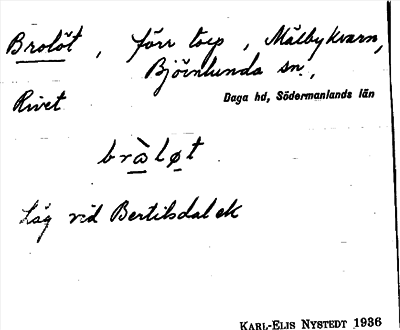 Brolöt, förr torp, Mälbykvarn,
Björnlunda sn.,
Rivet
Daga hd, Södermanlands län
bràløt
Låg vid Bertilsdal ek
KARL-ELIS NYSTEDT 1936